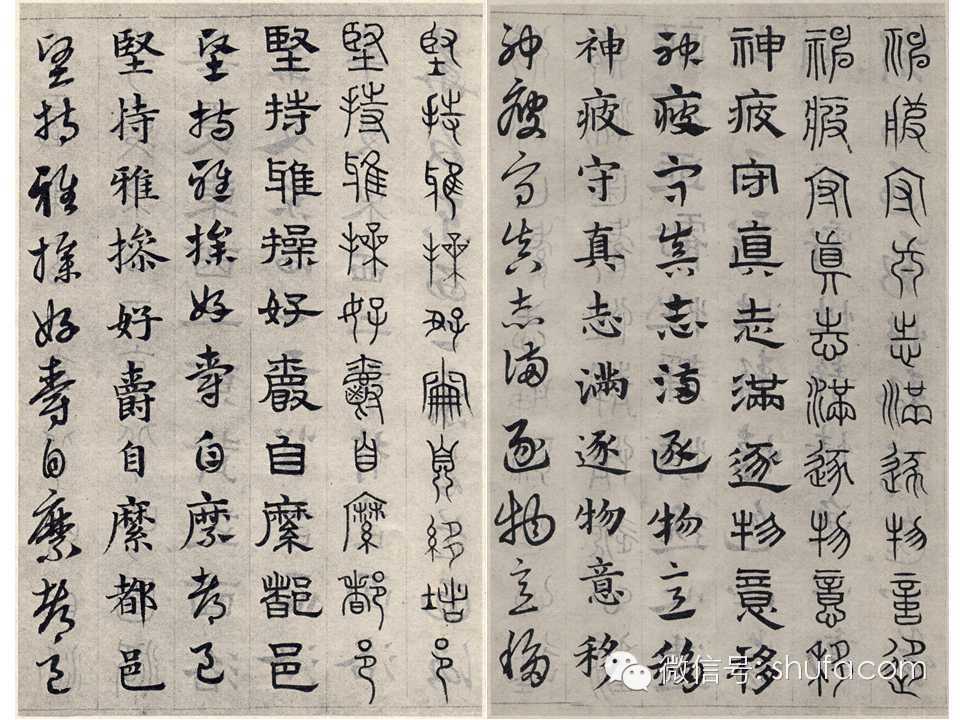 神疲守真志滿逐物意移
神疲守真志滿逐物意移
神疲守真志滿逐物意移
神疲守真志滿逐物意移
神疲守真志滿逐物意移
神疲守真志滿逐物意移
堅持雅操好爵自縻都邑
堅持雅操好爵自縻都邑
堅持雅操好爵自縻都邑
堅持雅操好爵自縻都邑
堅持雅操好爵自縻都邑
堅持雅操好爵自縻都邑
微信号:shufacom